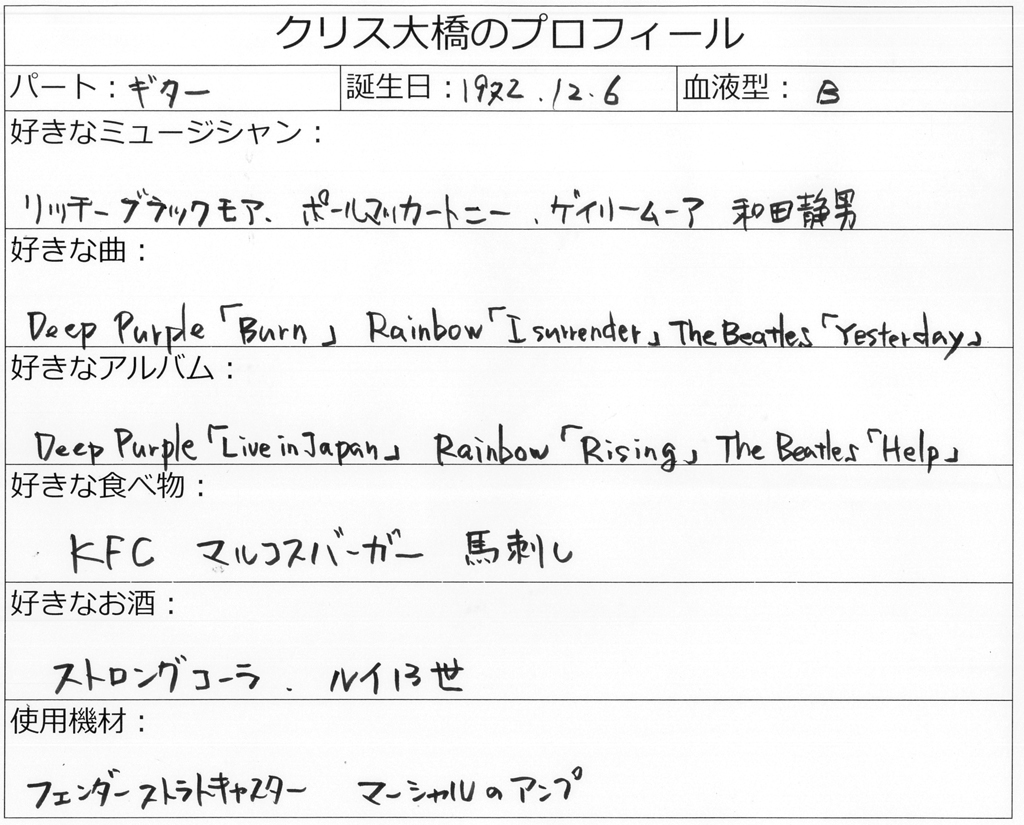 クリス大橋のプロフィール
パート：ギター 誕生日：1972.12.6 血液型： B
好きなミュージシャン：
リッチーブラックモア、ポールマッカートニー、ゲイリームーア 和田静男
好きな曲：
Deep Purple「Burn」 Rainbow「I surrender」The Beatles「Yesterday」
好きなアルバム：
Deep Purple「Live in Japan」 Rainbow「Rising」 The Beatles「Help」
好きな食べ物：
KFC マルコスバーガー 馬刺し
好きなお酒：
ストロングコーラ 、ルイ13世
使用機材：
フェンダーストラトキャスター マーシャルのアンプ